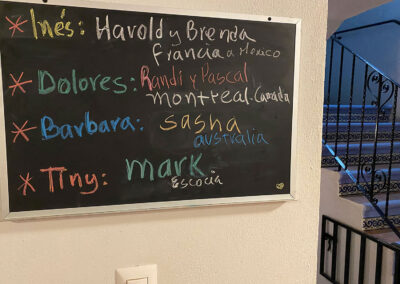 * Inés: Harold y Brenda
Francia a Mexico
* Dolores: Randi y Pascal
montreal-Canada
* Barbara: sasha
australia
* Tiny: mark
Escocia